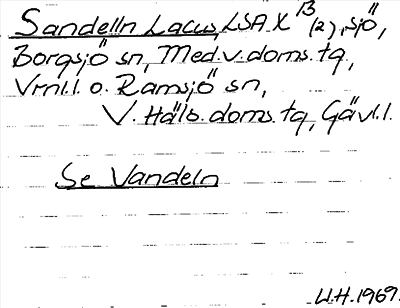 Sandelln Lacus, LSA X 13 (2), sjö,
Borgsjö sn, Med.v.doms.tg,
Vrnl.l. o. Ramsjö sn,
V. Häls.doms.tg, Gävl.l.
Se Vandeln
U.H. 1969.